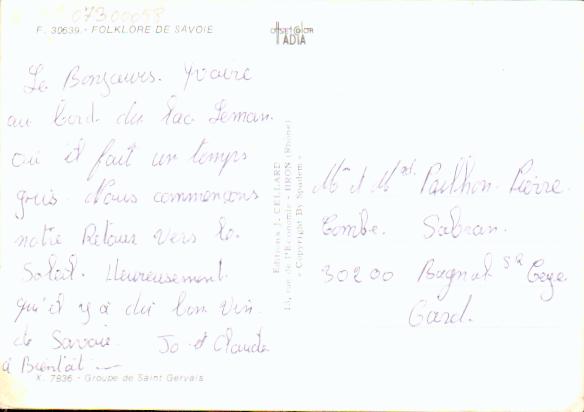 07300058
F. 30639. - FOLKLORE DE SAVOIE
OffsetColor
IADIA
Le Bonjours. Yvoire
au bord du lac Leman.
où il fait un temps
gris. Nous commençons
notre Retour vers le
Soleil. Heureusement
qu'il y a du bon vin
de Savoie. Jo et Claude
à Bientôt
K. 7936 - Groupe de Saint Gervais
Editions J. CELLARD
13, rue de l'Economie - BRON (Rhône)
« Copyright By Spadem »
Mr et Mme Paulhon Pierre.
Combe. Sabran.
30200 Bagnol sr Ceze
Gard.